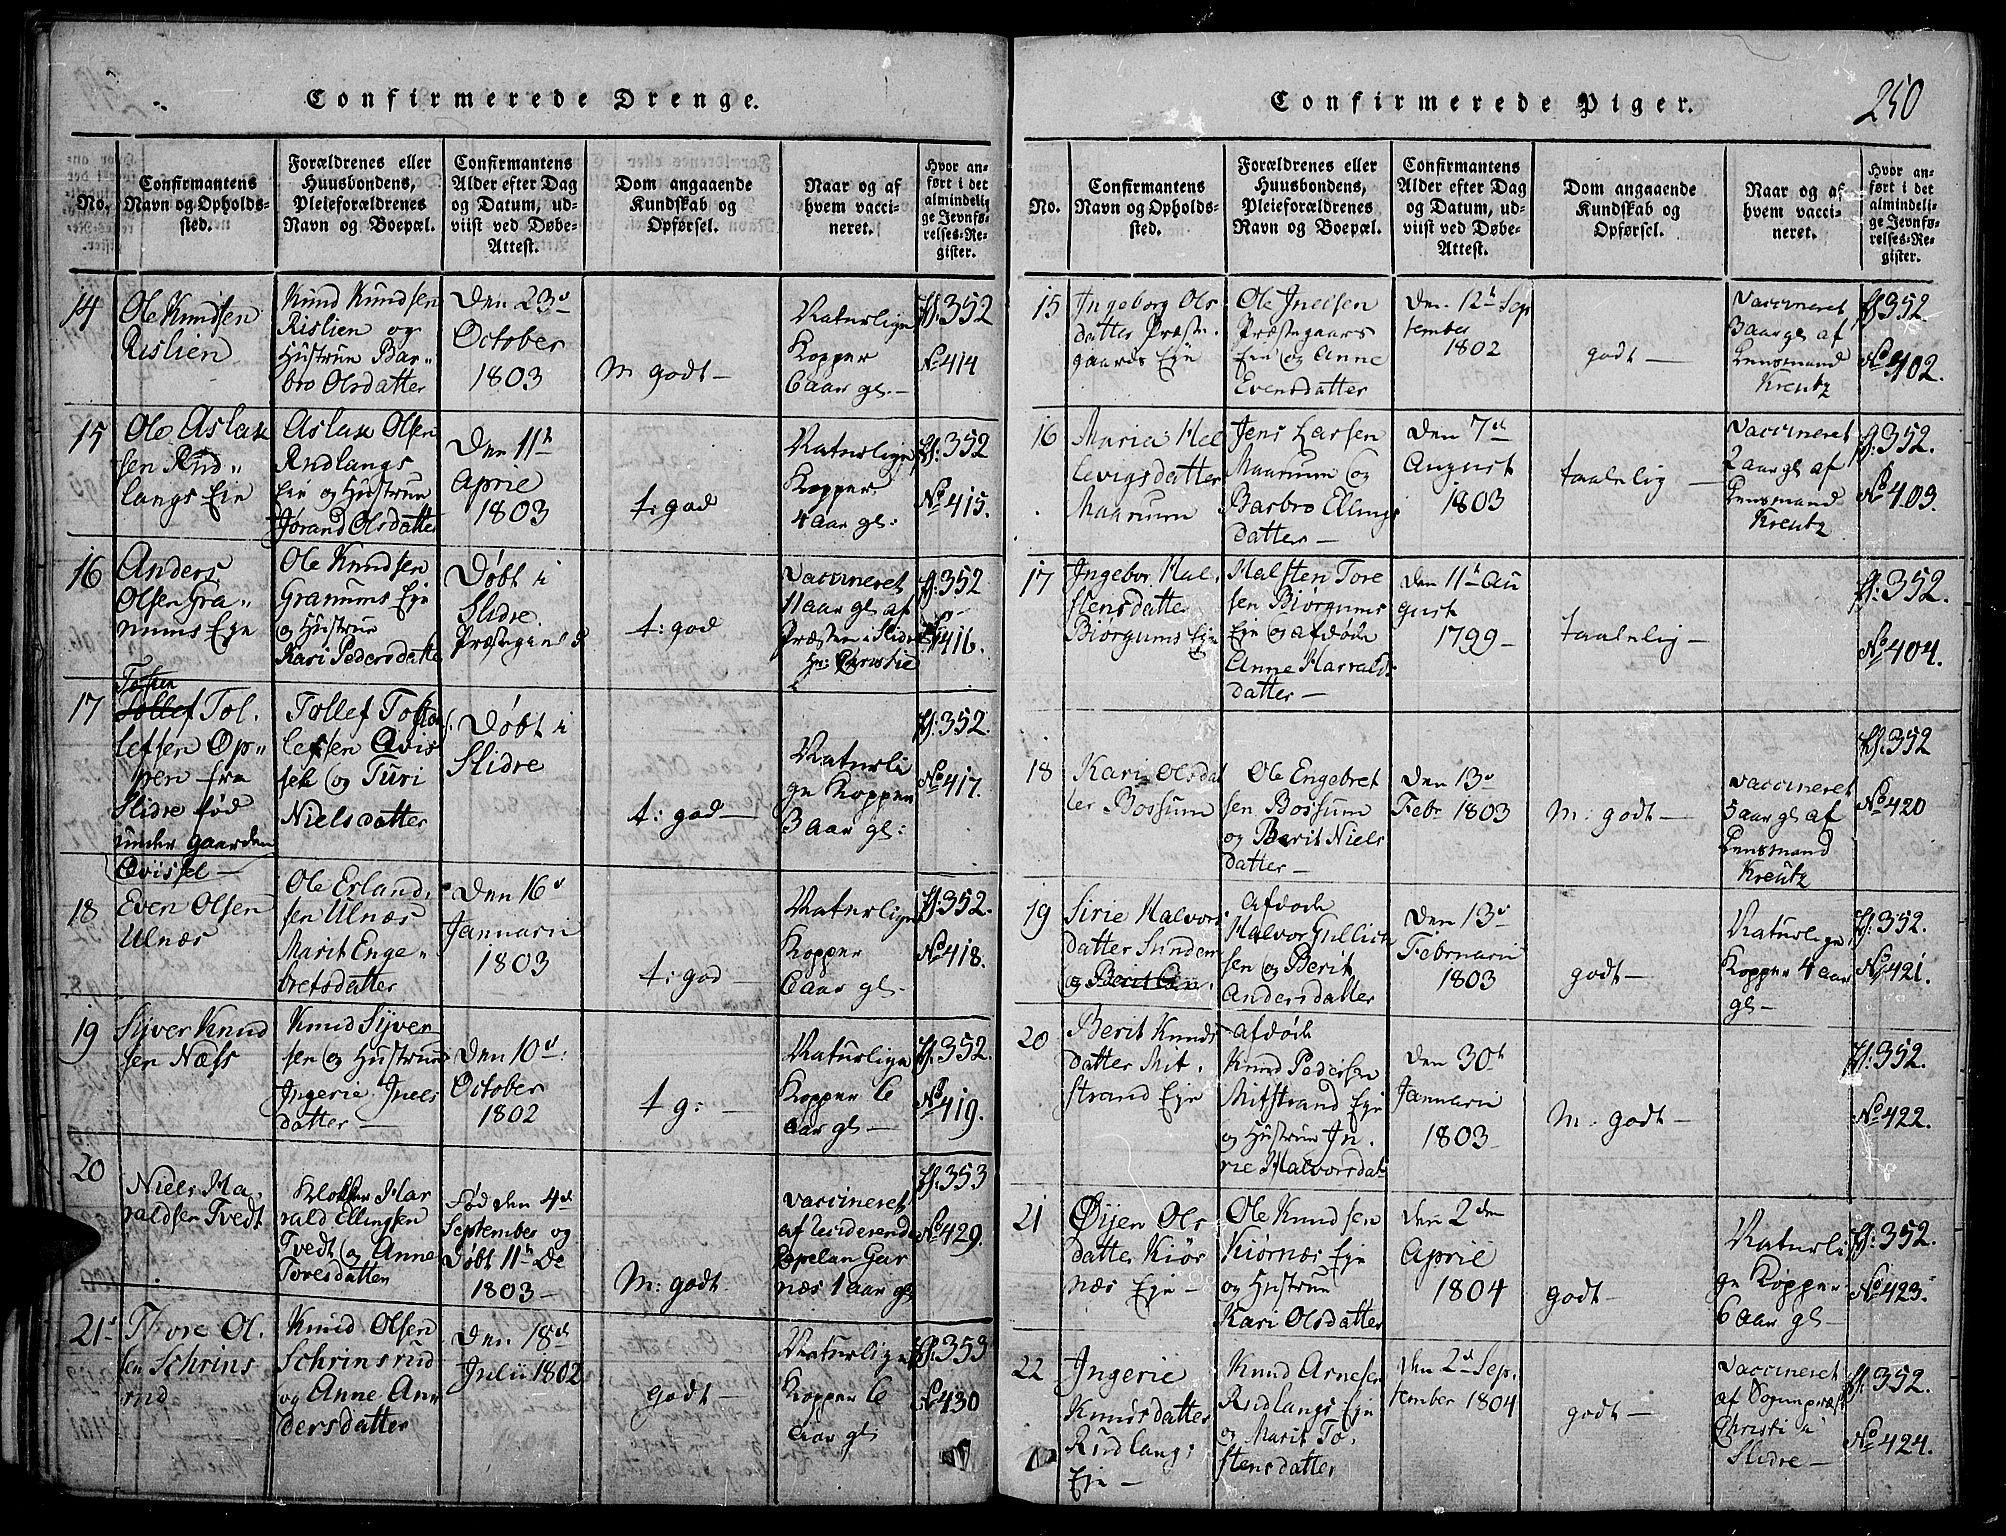 Confirmerede Drenge.
No.
Confirmantens
Navn og Opholds-
sted.
Forældrenes eller
Huusbondens,
Pleieforældrenes
Navn og Boepæl.
Confirmantens
Alder efter Dag
og Datum, ud-
viist ved Døbe-
Attest.
Dom angaaende
Kundskab og
Opførsel.
Naar og af
hvem vacci-
neret.
Hvor an-
ført i det
almindeli-
ge Jevnfø-
relses-Re-
gister.
14
Ole Knudsen
Rislien
Knud Knudsen
Rislien og
Hustrue Bar-
bro Olsdatter
Den 23d
October
1803
M godt -
Naturlige
Kopper
6 aar gl. -
fl: 352
No 414
15
Ole Aslak
sen Rud-
langs Eje
Aslak Olsen
Rudlangs
Eie og Hustrue
Jørand Olsdatter
Den 11h
April
1803
t: god
Naturlige
Kopper
4 aar gl:
fl: 352
No 415.
16
Anders
Olsen Gra-
nums Eje
Ole Knudsen
Granums Eje
og Hustrue
Kari Pedersdatter
Døbt i
Slidre
Præstegield
t: god
Vaccineret
11 aar gl af
Præsten i Slidre
Hr: Christie
fl: 352
No 416.
17
Tollef Tol-
lefsen Op-
pen fra
Slidre fød
under gaarden
Qvissel -
Tollef Tosten
lefsen Qvis
sel og Turi
Nielsdatter
Døbt i
Slidre
t: god -
Naturli
ge Kopper
3 aar gl:
fl: 352.
No 417.
18
Even Olsen
Ulnæs
Ole Erland-
sen Ulnæs
Marit Enge-
bretsdatter
Den 16d
Januarii
1803
t: god -
Naturlige
Kopper
6 aar gl -
fl: 352.
No 418.
19
Siver Knud
sen Næss
Knud Syver
sen og Hustrue
Ingerie Juels
datter -
Den 10d:
October
1802
t g: -
Naturlige
Kopper 6
aar gl -
fl: 352.
No 419.
20
Niels Ha-
raldsen Tvedt
Klokker Har
rald Ellingsen
Tvedt og Anne
Toresdatter
Fød den 4de
September og
Døbt 11h De
1803 -
M: godt
Vaccineret
af residerende
Capelan Gar
næs 1 aar gl
fl: 353
No 429.
21
Thore Ol-
sen Schrins
rud
Knud Olsen
Schrinsrud
og Anne An-
dersdatter
Den 18d
Julii 1802
godt -
Naturlige
Kopper 6
aar gl
fl: 353
No 430
Confirmerede Piger.
250
No.
Confirmantens
Navn og Opholds-
sted.
Forældrenes eller
Huusbondens,
Pleieforældrenes
Navn og Boepæl.
Confirmantens
Alder efter Dag
og Datum, ud-
viist ved Døbe-
Attest.
Dom angaaende
Kundskab og
Opførsel.
Naar og af
hvem vacci-
neret.
Hvor an-
ført i det
almindeli-
ge Jevnfø-
relses-Re-
gister.
15
Ingeborg Ols
datter Præste-
gaards Eje
Ole Juelsen
Præstegaars
Eie og Anne
Evensdatter
Den 12h Sep
tember
1802
godt -
Vaccineret
3 aar gl af
Lensmand
Kreutz
fl: 352.
No 402.
16
Maria Hel
levigsdatter
Maarum
Jens Larsen
Maarum og
Barbro Ellings
datter -
Den 7d
August
1803
taalelig -
Vaccineret
2 aar gl af
Lensmand
Kreutz
fl: 352.
No 403.
17
Ingebor Hal-
stensdatter
Biørgums Eje
Halsten Tore
sen Biørgums
Eje og afdøde
Anne Harralds
datter -
Den 11h Au
gust
1799
taalelig -
fl: 352.
No 404.
18
Kari Olsdat
ter Bossum
Ole Engebret
sen Bossum
og Berit Niels
datter -
Den 13d
Febr 1803
M: godt -
Vaccineret
5 aar gl af
Lensmand
Kreutz
fl: 352
No 420
19
Sirie Halvors
datter Sinden
Afdøde
Halvor Gullich
sen og Berit
Andersdatter
Den 13d
Februarii
1803
godt -
Naturlige
Kopper 4 aar
gl -
fl: 352.
No 421.
20
Berit Knuds
datter Mit-
strand Eje
Afdøde
Knud Pedersen
Mitstrand Eje
og Hustrue In-
rie Halvorsdat
Den 30h
Januarii
1803
M: godt -
fl: 352.
No 422.
21
Øijen Ols
datter Kiør
næs Eje -
Ole Knudsen
Kiørnæs Eje
og Hustrue
Kari Olsdatter
Den 2den
April
1804
godt -
Naturli
ge Kopper
6 aar gl -
fl: 352.
No 423.
22
Ingerie
Knudsdatter
Rudlangs
Eje -
Knud Arnesen
Rudlangs Eje
og Marit To-
stensdatter
Den 2d Sep-
tember 1804
godt -
Vaccineret
af Sognepræst
Christi i
Slidre -
fl: 352.
No 424.